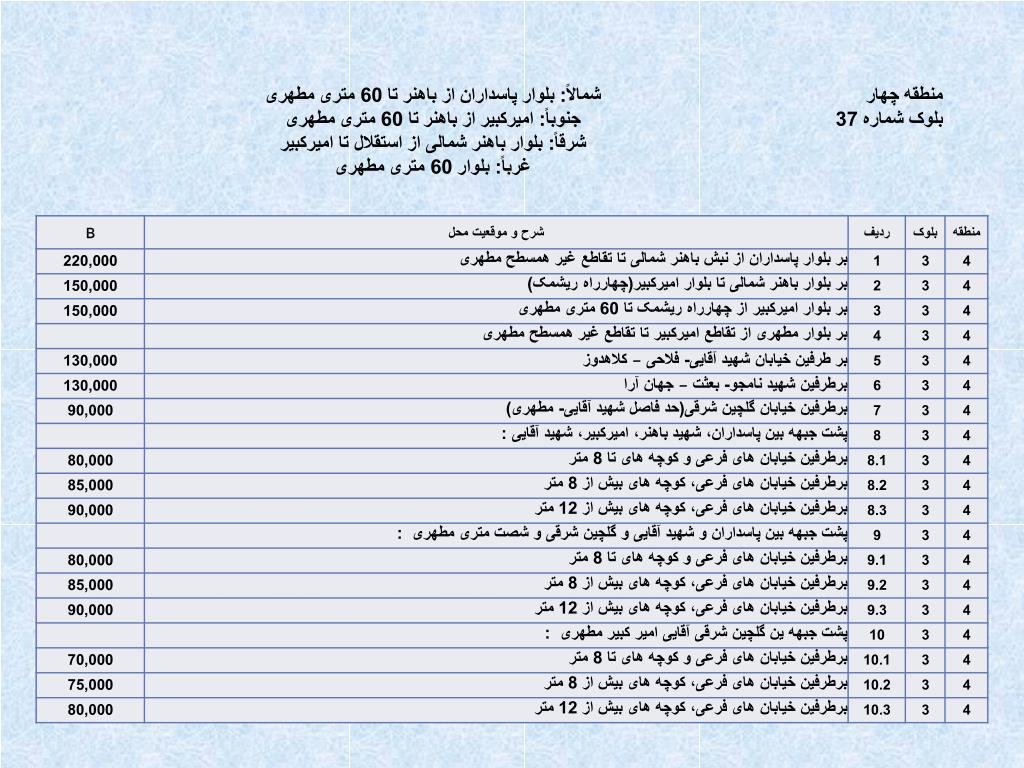 منطقه چهار
بلوک شماره 37
شمالاً: بلوار پاسداران از باهنر تا 60 متری مطهری
جنوباً: امیرکبیر از باهنر تا 60 متری مطهری
شرقاً: بلوار باهنر شمالی از استقلال تا امیرکبیر
غرباً: بلوار 60 متری مطهری
منطقه بلوک ردیف شرح و موقعیت محل B
4 3 1 بر بلوار پاسداران از نبش باهنر شمالی تا تقاطع غیر همسطح مطهری 220,000
4 3 2 بر بلوار باهنر شمالی تا بلوار امیرکبیر(چهارراه ریشمک) 150,000
4 3 3 بر بلوار امیرکبیر از چهارراه ریشمک تا 60 متری مطهری 150,000
4 3 4 بر بلوار مطهری از تقاطع امیرکبیر تا تقاطع غیر همسطح مطهری
4 3 5 بر طرفین خیابان شهید آقایی- فلاحی – کلاهدوز 130,000
4 3 6 برطرفین شهید نامجو- بعثت – جهان آرا 130,000
4 3 7 برطرفین خیابان گلچین شرقی(حد فاصل شهید آقایی- مطهری) 90,000
4 3 8 پشت جبهه بین پاسداران، شهید باهنر، امیرکبیر، شهید آقایی :
4 3 8.1 برطرفین خیابان های فرعی و کوچه های تا 8 متر 80,000
4 3 8.2 برطرفین خیابان های فرعی، کوچه های بیش از 8 متر 85,000
4 3 8.3 برطرفین خیابان های فرعی، کوچه های بیش از 12 متر 90,000
4 3 9 پشت جبهه بین پاسداران و شهید آقایی و گلچین شرقی و شصت متری مطهری :
4 3 9.1 برطرفین خیابان های فرعی و کوچه های تا 8 متر 80,000
4 3 9.2 برطرفین خیابان های فرعی، کوچه های بیش از 8 متر 85,000
4 3 9.3 برطرفین خیابان های فرعی، کوچه های بیش از 12 متر 90,000
4 3 10 پشت جبهه ین گلچین شرقی آقایی امیر کبیر مطهری :
4 3 10.1 برطرفین خیابان های فرعی و کوچه های تا 8 متر 70,000
4 3 10.2 برطرفین خیابان های فرعی، کوچه های بیش از 8 متر 75,000
4 3 10.3 برطرفین خیابان های فرعی، کوچه های بیش از 12 متر 80,000